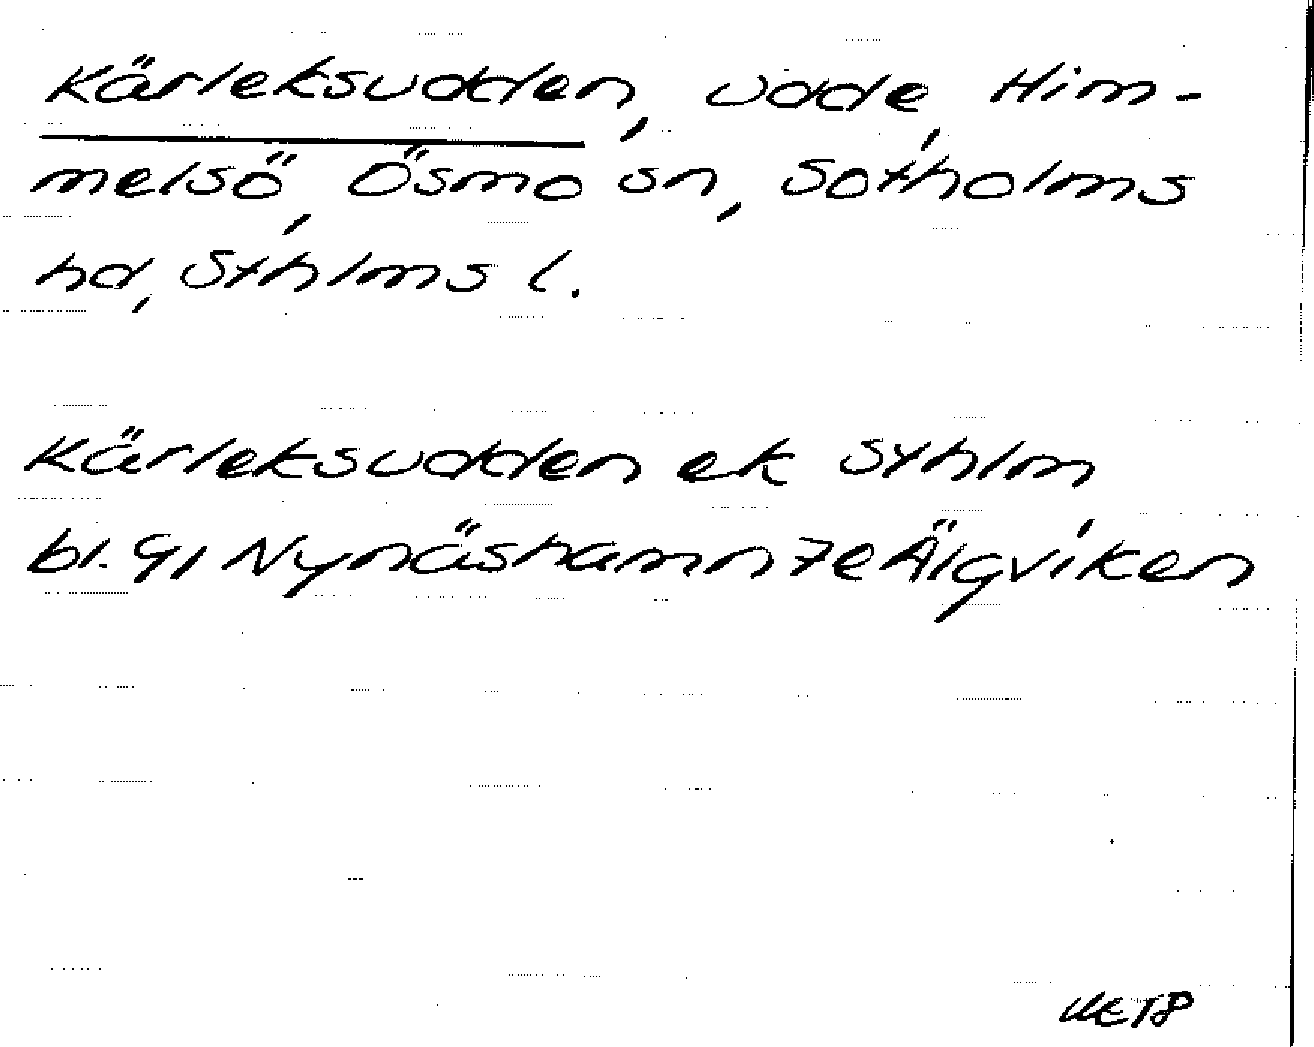 Kärleksudden, udde, Him-
melsö, Ösmo sn, Sotholms
hd, Sthlms l.
Kärleksudden ek Sthlm
bl. 91 Nynäshamn 7e Älgviken